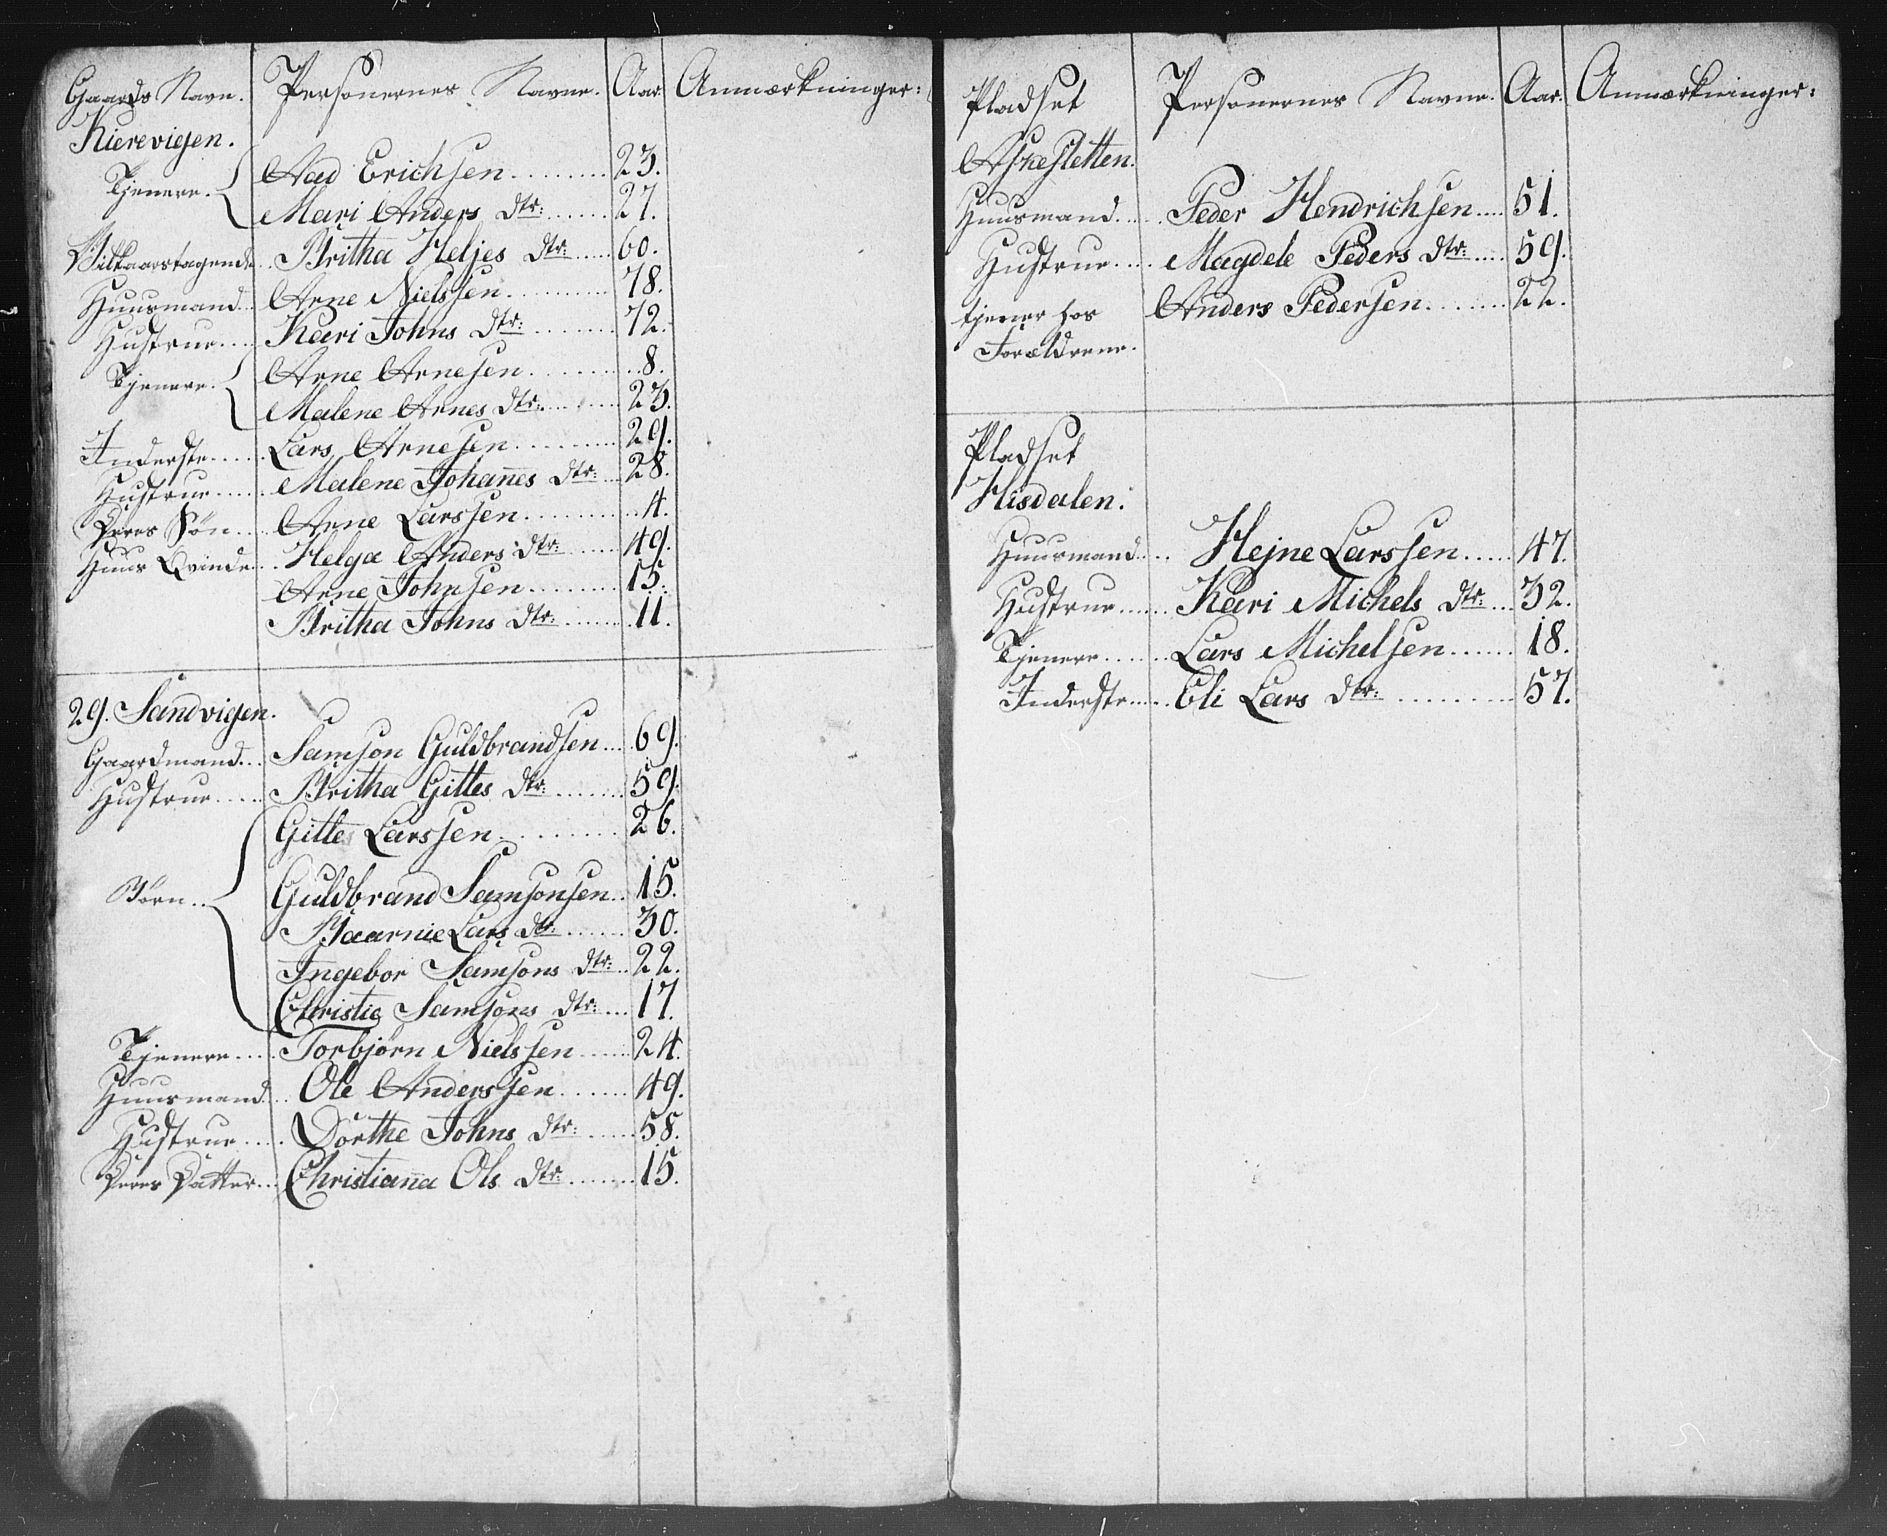 Gaards Navn. Personernes Navne. Aar Anmærkninger:
Kierevigen.
Tjenere. Aad Erichsen 23.
Mari Anders Dtr: 27.
Vilkaarstagende Britha Heljes Dtr: 60.
Huusmand Arne Nielssen 78.
Hustrue Kari Johns Dtr: 72.
Tjenere. Arne Arnesen 8.
Malene Arnes Dtr: 23.
Inderste Lars Arnesen 29.
Hustrue Malene Johan̄es Dtr: 28.
Deres Søn Arne Larssen 4.
Huus Qvinde Helga Anders Dtr: 49.
Arne Johnsen 15.
Britha Johns Dtr: 11.
29. Sandvigen.
Gaardmand Samson Guldbrandsen 69.
Hustrue Britha Gittes Dtr: 59.
Gittes Larssen 26.
Børn Guldbrand Samsonsen 15.
Baarnie Lars Dtr: 30.
Ingebor Samsons Dtr: 22.
Christie Samsons Dtr: 17.
Tjenere Torbjørn Nielssen 24.
Huusmand Ole Anderssen 49.
Hustrue Dorthe Johns Dtr: 58.
Deres Datter Christian̄a Ols Dtr: 15.
Pladset Personernes Navne. Aar. Anmærkninger:
Askesletten.
Huusmand Peder Hendrichsen 51.
Hustrue Magdele Peders Dtr: 59.
tjener hos Anders Pedersen 22.
Forældrene.
Pladset
Hisdalen:
Huusmand Hejne Larssen 47.
Hustrue Kari Michels Dtr: 32.
Tjenere Lars Michelsen 18.
Inderste Eli Lars Dtr: 57.